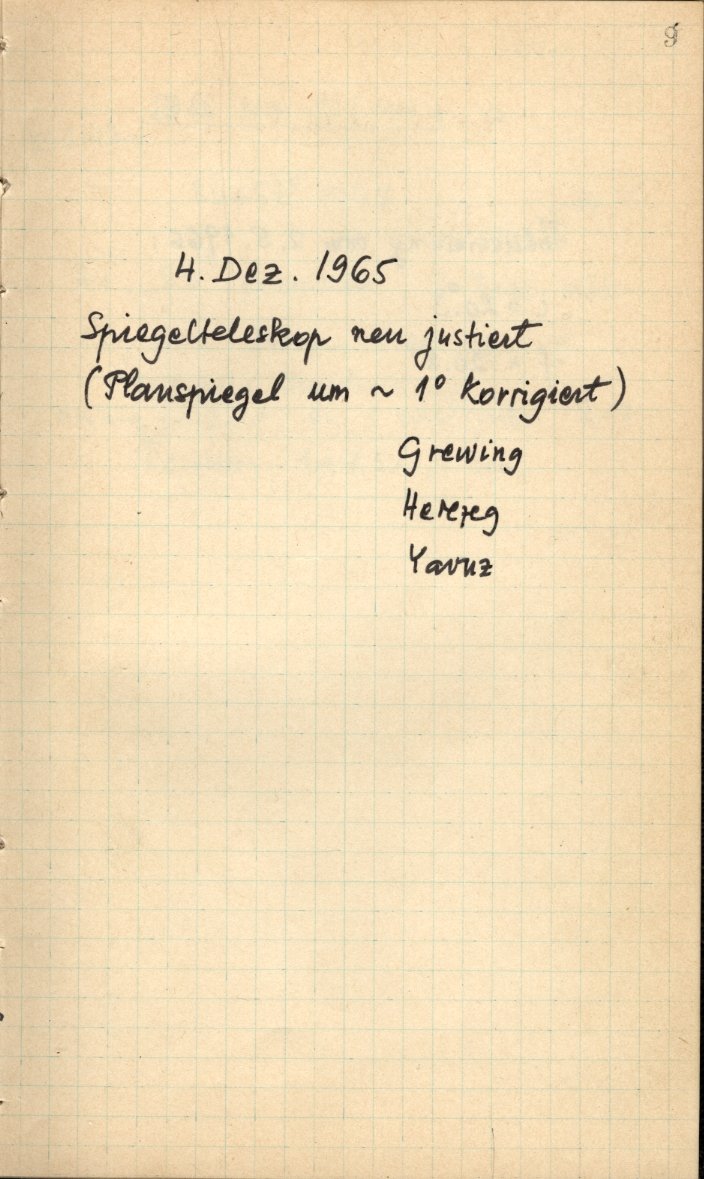 9
4. Dez. 1965
Spiegelteleskop neu justiert
(Planspiegel um ~ 1° korrigiert)
Grewing
Herczeg
Yavuz